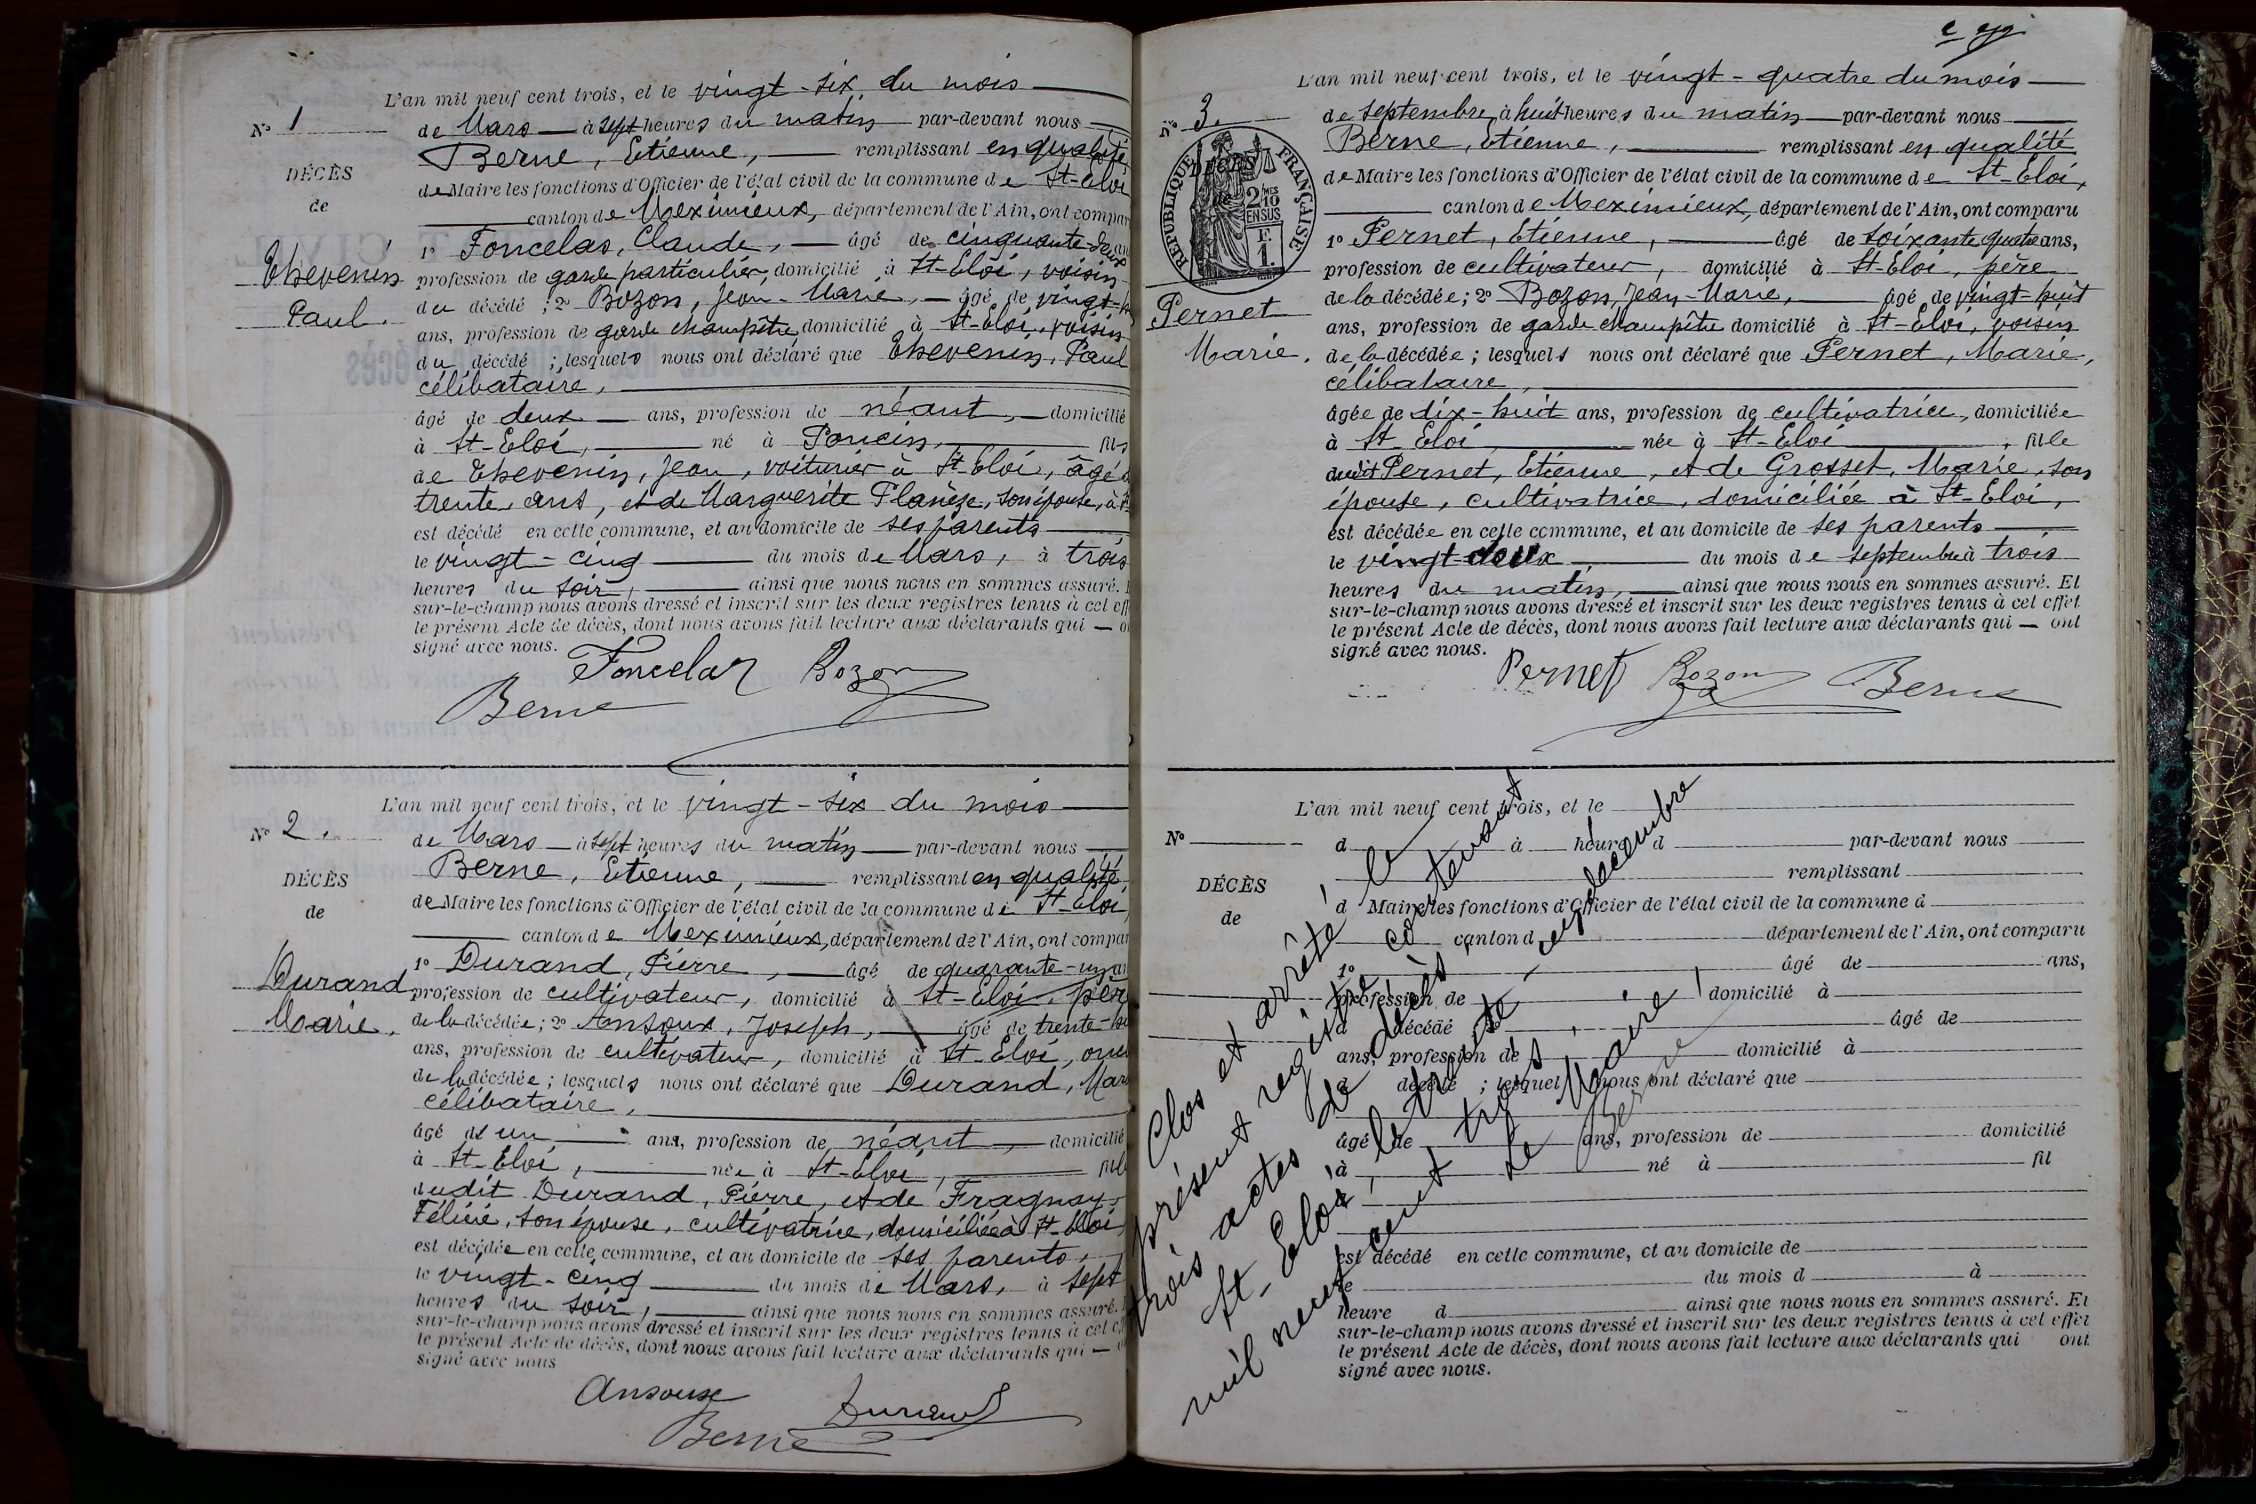 L'an mil neuf cent trois, et le vingt-six du mois
N° 1
de Mars à sept heures du matin par-devant nous
Berne, Etienne, remplissant en qualité
DÉCÈS
de Maire les fonctions d'Officier de l'état civil de la commune de St-Eloi
de
canton de Meximieux, département de l'Ain, ont compar
1° Foncelas, Claude, âgé de cinquante-deux
Thevenin
profession de garde particulier, domicilié à St-Eloi, voisin
Paul.
du décédé; 2° Bozon, Jean-Marie, âgé de vingt-
ans, profession de garde champêtre, domicilié à St-Eloi, voisin
du décédé; lesquels nous ont déclaré que Thevenin, Paul
célibataire,
âgé de deux ans, profession de néant, domicilié
à St-Eloi, né à Poncin, fils
de Thevenin, Jean, voiturier à St-Eloi, âgé
trente ans, et de Marguerite Planèze, son épouse, à
est décédé en cette commune, et au domicile de ses parents
le vingt-cinq du mois de Mars, à trois
heures du soir, ainsi que nous nous en sommes assuré.
sur-le-champ nous avons dressé et inscrit sur les deux registres tenus à cet eff
le présent Acte de décès, dont nous avons fait lecture aux déclarants qui
signé avec nous.
Foncelas Bozon
Berne
L'an mil neuf cent trois, et le vingt-six du mois
N° 2.
de Mars à sept heures du matin par-devant nous
Berne, Etienne, remplissant en qualité
DÉCÈS
de Maire les fonctions d'Officier de l'état civil de la commune de St-Eloi
de
canton de Meximieux, département de l'Ain, ont compar
1° Durand, Pierre, âgé de quarante-un
Durand
profession de cultivateur, domicilié à St-Eloi, père
Marie.
de la décédée; 2° Ansoux, Joseph, âgé de trente-
ans, profession de cultivateur, domicilié à St-Eloi,
de la décédée; lesquels nous ont déclaré que Durand, Mar
célibataire,
âgé de un ans, profession de néant, domicilié
à St-Eloi, née à St-Eloi, fille
dudit Durand, Pierre, et de Fragnay
Félicie, son épouse, cultivatrice, domiciliée à St-Eloi
est décédée en cette commune, et au domicile de ses parents,
le vingt-cinq du mois de Mars, à sept
heures du soir, ainsi que nous nous en sommes assuré.
sur-le-champ nous avons dressé et inscrit sur les deux registres tenus à cet
le présent Acte de décès, dont nous avons fait lecture aux déclarants qui
signé avec nous
Ansoux Durand
Berne
L'an mil neuf cent trois, et le vingt-quatre du mois
N° 3.
de septembre, à huit heures du matin par-devant nous
Berne, Etienne, remplissant en qualité
DÉCÈS
de
RÉPUBLIQUE FRANÇAISE
2/10MES
EN SUS
F.
1.
de Maire les fonctions d'Officier de l'état civil de la commune de St-Eloi,
canton de Meximieux, département de l'Ain, ont comparu
1° Pernet, Etienne, âgé de soixante quatre ans,
profession de cultivateur, domicilié à St-Eloi, père
Pernet
de la décédée; 2° Bozon, Jean-Marie, âgé de vingt-huit
ans, profession de garde champêtre domicilié à St-Eloi, voisin
Marie.
de la décédée; lesquels nous ont déclaré que Pernet, Marie,
célibataire,
âgée de dix-huit ans, profession de cultivatrice, domiciliée
à St Eloi née à St-Eloi, fille
dudit Pernet, Etienne, et de Grosset, Marie, son
épouse, cultivatrice, domiciliée à St-Eloi,
est décédée en cette commune, et au domicile de ses parents
le vingt-deux du mois de septembre à trois
heures du matin, ainsi que nous nous en sommes assuré. Et
sur-le-champ nous avons dressé et inscrit sur les deux registres tenus à cet effet
le présent Acte de décès, dont nous avons fait lecture aux déclarants qui ont
signé avec nous.
Pernet Bozon Berne
L'an mil neuf cent trois, et le
N°
d à heure d par-devant nous
remplissant
DÉCÈS
d Maire les fonctions d'Officier de l'état civil de la commune d
de
canton d département de l'Ain, ont comparu
1° âgé de ans,
profession de domicilié à
d décédé 2° âgé de
ans, profession de domicilié à
d décédé ; lesquel nous ont déclaré que
âgé de ans, profession de domicilié
à né à fil
est décédé en cette commune, et au domicile de
le du mois d à
heure d ainsi que nous nous en sommes assuré. Et
sur-le-champ nous avons dressé et inscrit sur les deux registres tenus à cet effet
le présent Acte de décès, dont nous avons fait lecture aux déclarants qui ont
signé avec nous.
Clos et arrêté le
présent registre contenant
trois actes de décès,
St-Eloi, le trente-un décembre
mil neuf cent trois.
Le Maire,
Berne